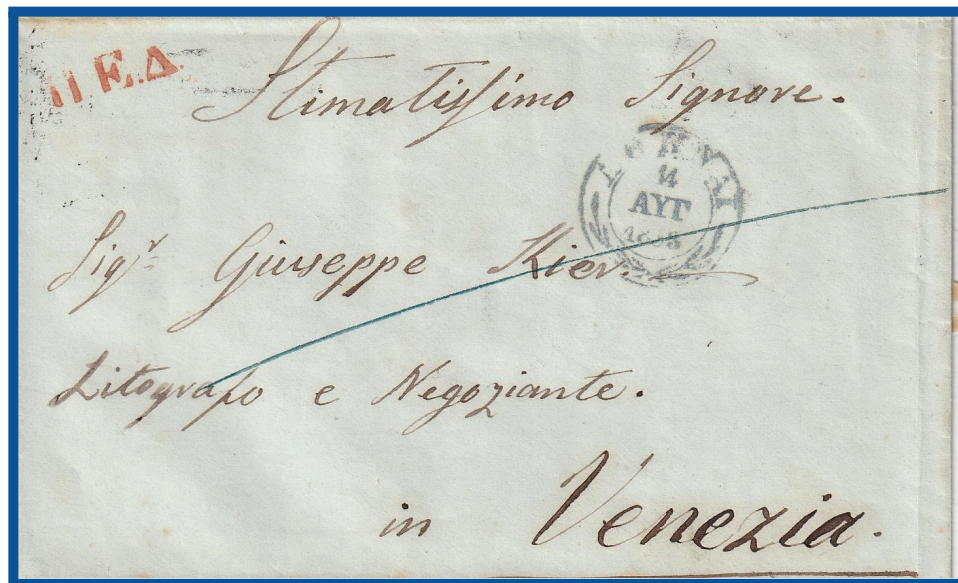 Π.Ε.Δ.
Stimatissimo Signore.
14
ΑΥΓ
Sigr. Giuseppe Kier.
Litografo e Negoziante.
in Venezia.